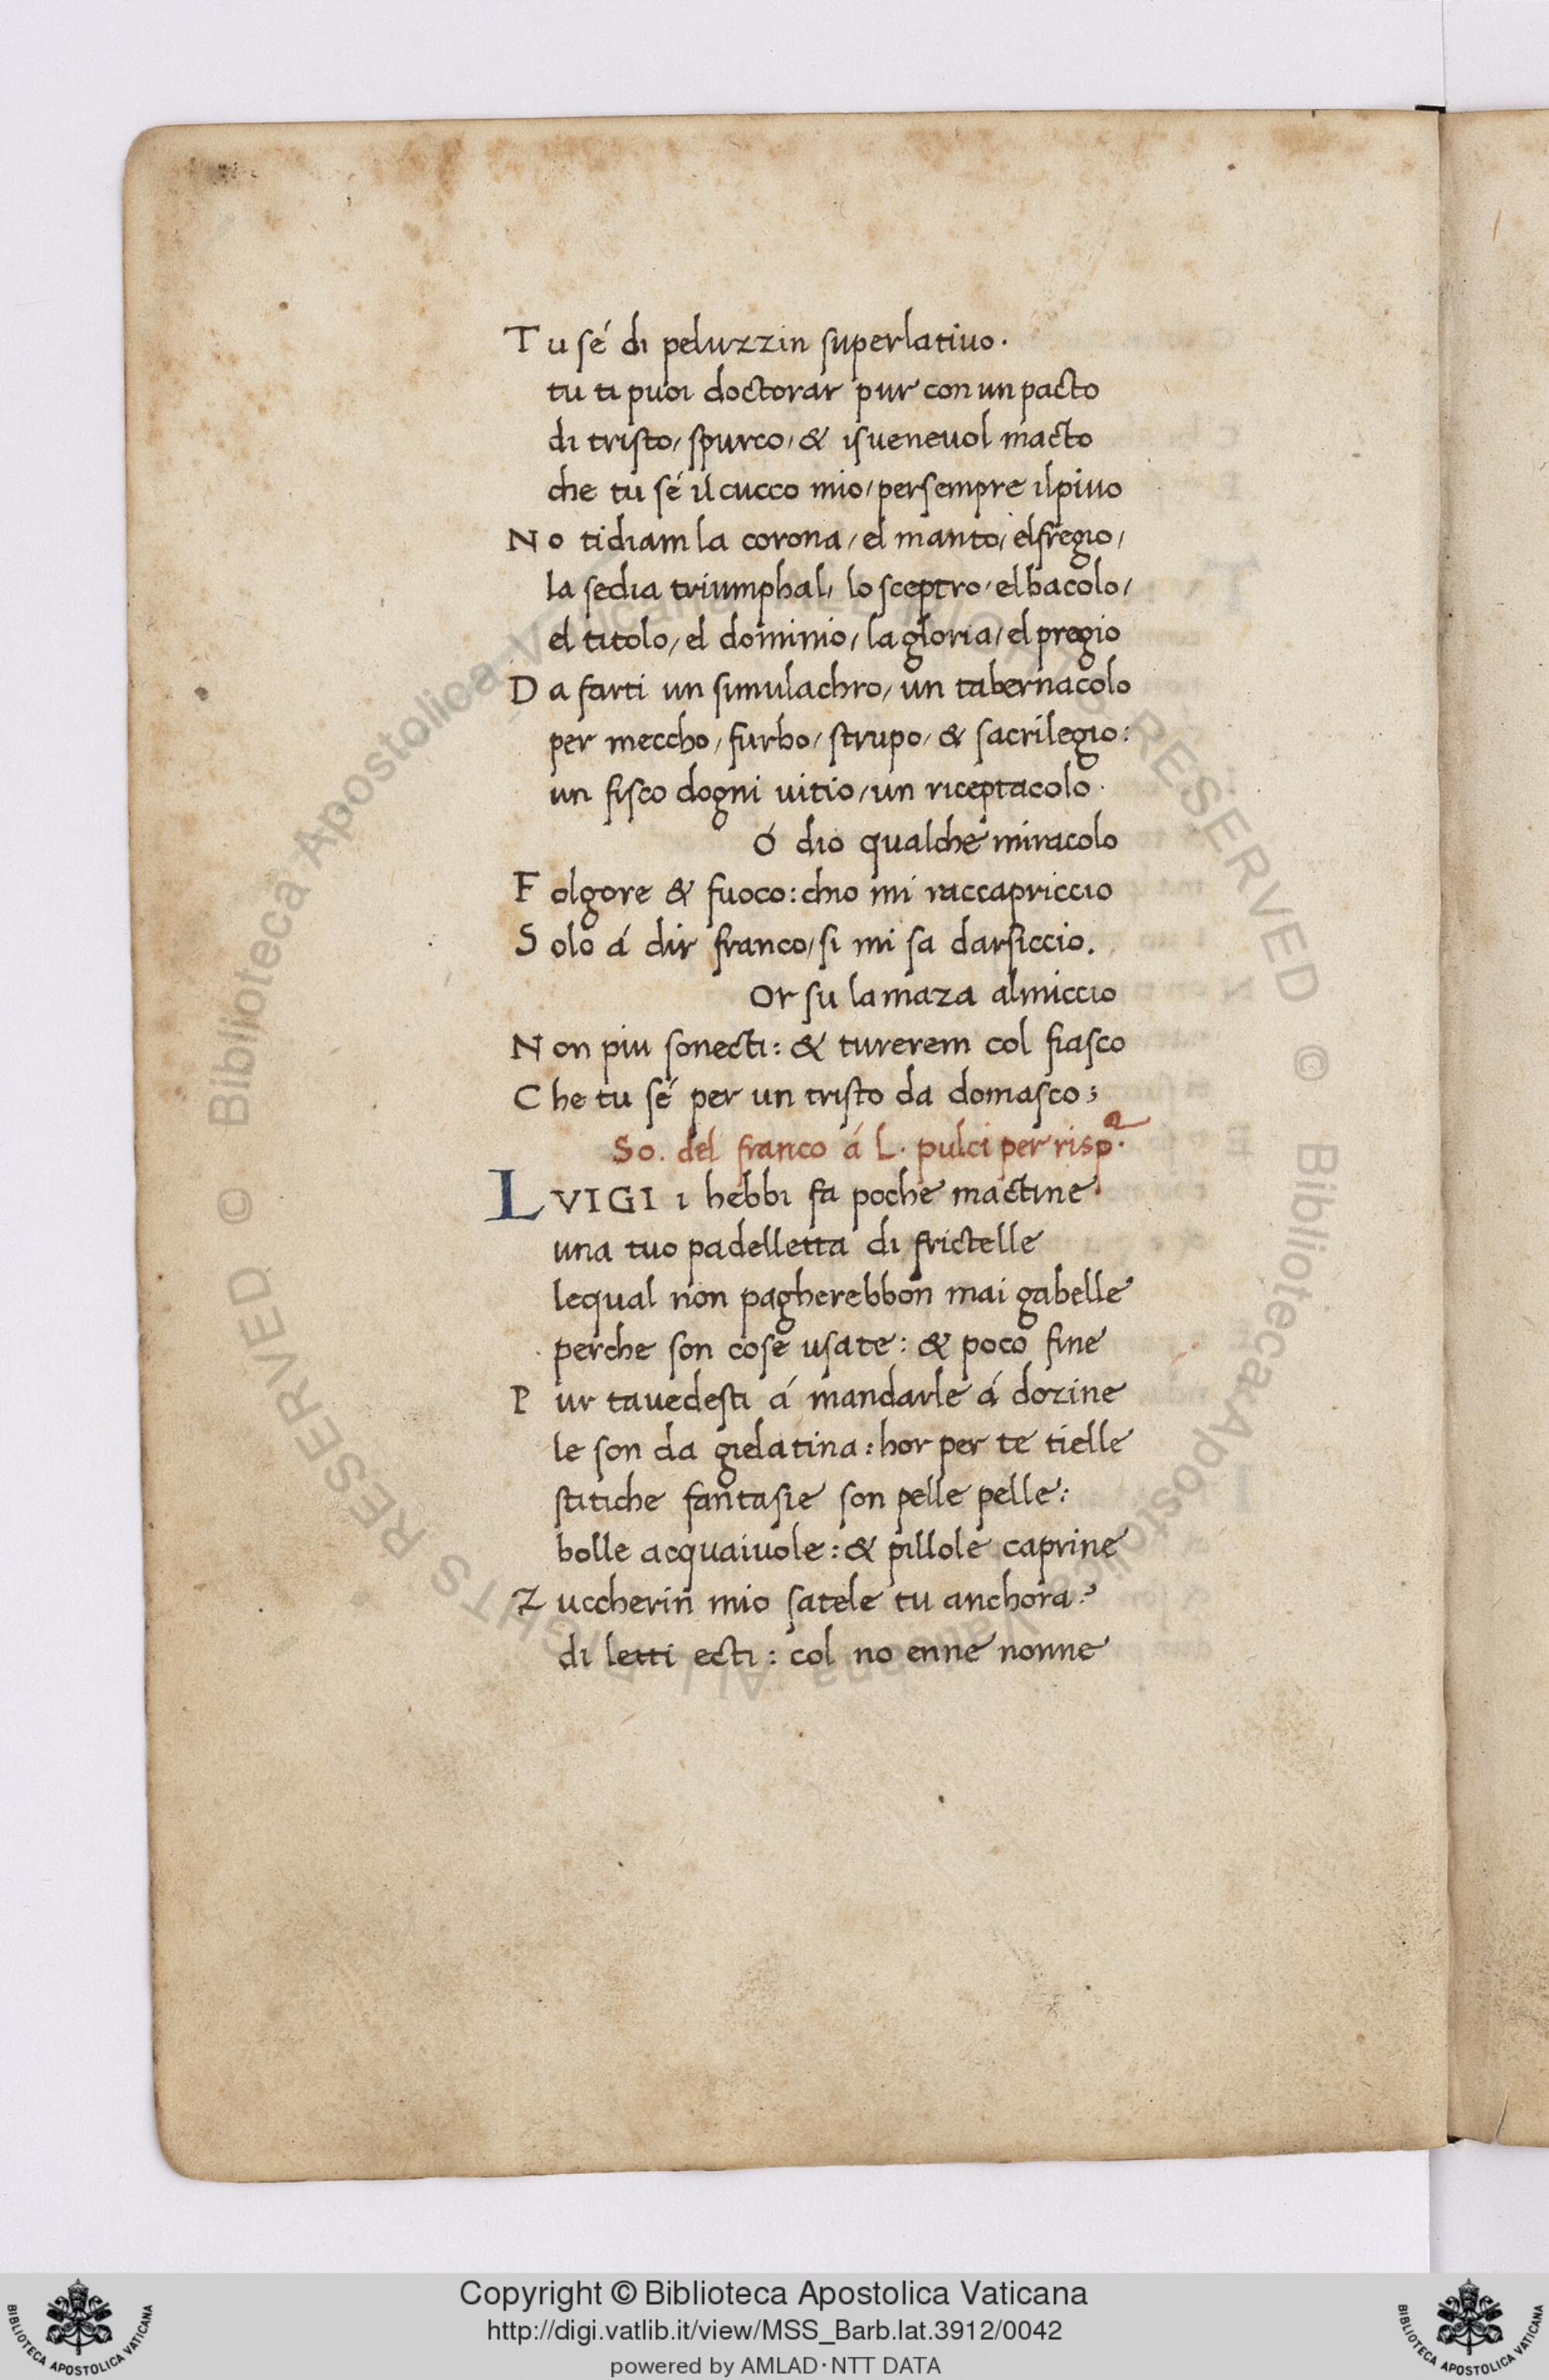 Tu sé di peluzzin superlatiuo.
tu ti puoi doctorar pur con un pacto
di tristo, spurco, & isueneuol macto
che tu sé il cucco mio, per sempre il piuo
No ti diam la corona, el manto, el fregio,
la sedia triumphal, lo sceptro, el bacolo,
el titolo, el dominio, la gloria, el pregio
Da farti un simulachro, un tabernacolo
per meccho, furbo, strupo, & sacrilegio:
un fisco dogni uitio, un riceptacolo.
ó dio qualche miracolo
Folgore & fuoco: chio mi raccapriccio
Solo á dir franco, si mi sa darsiccio.
Or su la maza al miccio
Non piu sonecti: & turerem col fiasco
Che tu sé per un tristo da domasco;
So. del franco á L. pulci per rispᵃ.
LVIGI i hebbi fa poche mactine
una tuo padelletta di frictelle
lequal non pagherebbon mai gabelle
perche son cose usate: & poco fine
Pur tauedesti á mandarle á dozine
le son da gielatina: hor per te tielle
stitiche fantasie son pelle pelle:
bolle acquaiuole: & pillole caprine
Zuccherin mio satele tu anchora?
di letti ecti: col no enne nonne
Biblioteca Apostolica Vaticana ALL RIGHTS RESERVED ©
Biblioteca Apostolica Vaticana ALL RIGHTS RESERVED ©
Copyright © Biblioteca Apostolica Vaticana
http://digi.vatlib.it/view/MSS_Barb.lat.3912/0042
powered by AMLAD·NTT DATA
BIBLIOTECA APOSTOLICA VATICANA
BIBLIOTECA APOSTOLICA VATICANA